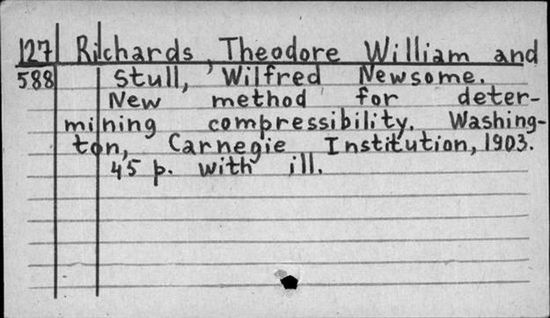 127 Richards, Theodore William and
588 Stull, Wilfred Newsome.
New method for deter-
mining compressibility. Washing-
ton, Carnegie Institution, 1903.
45 p. with ill.